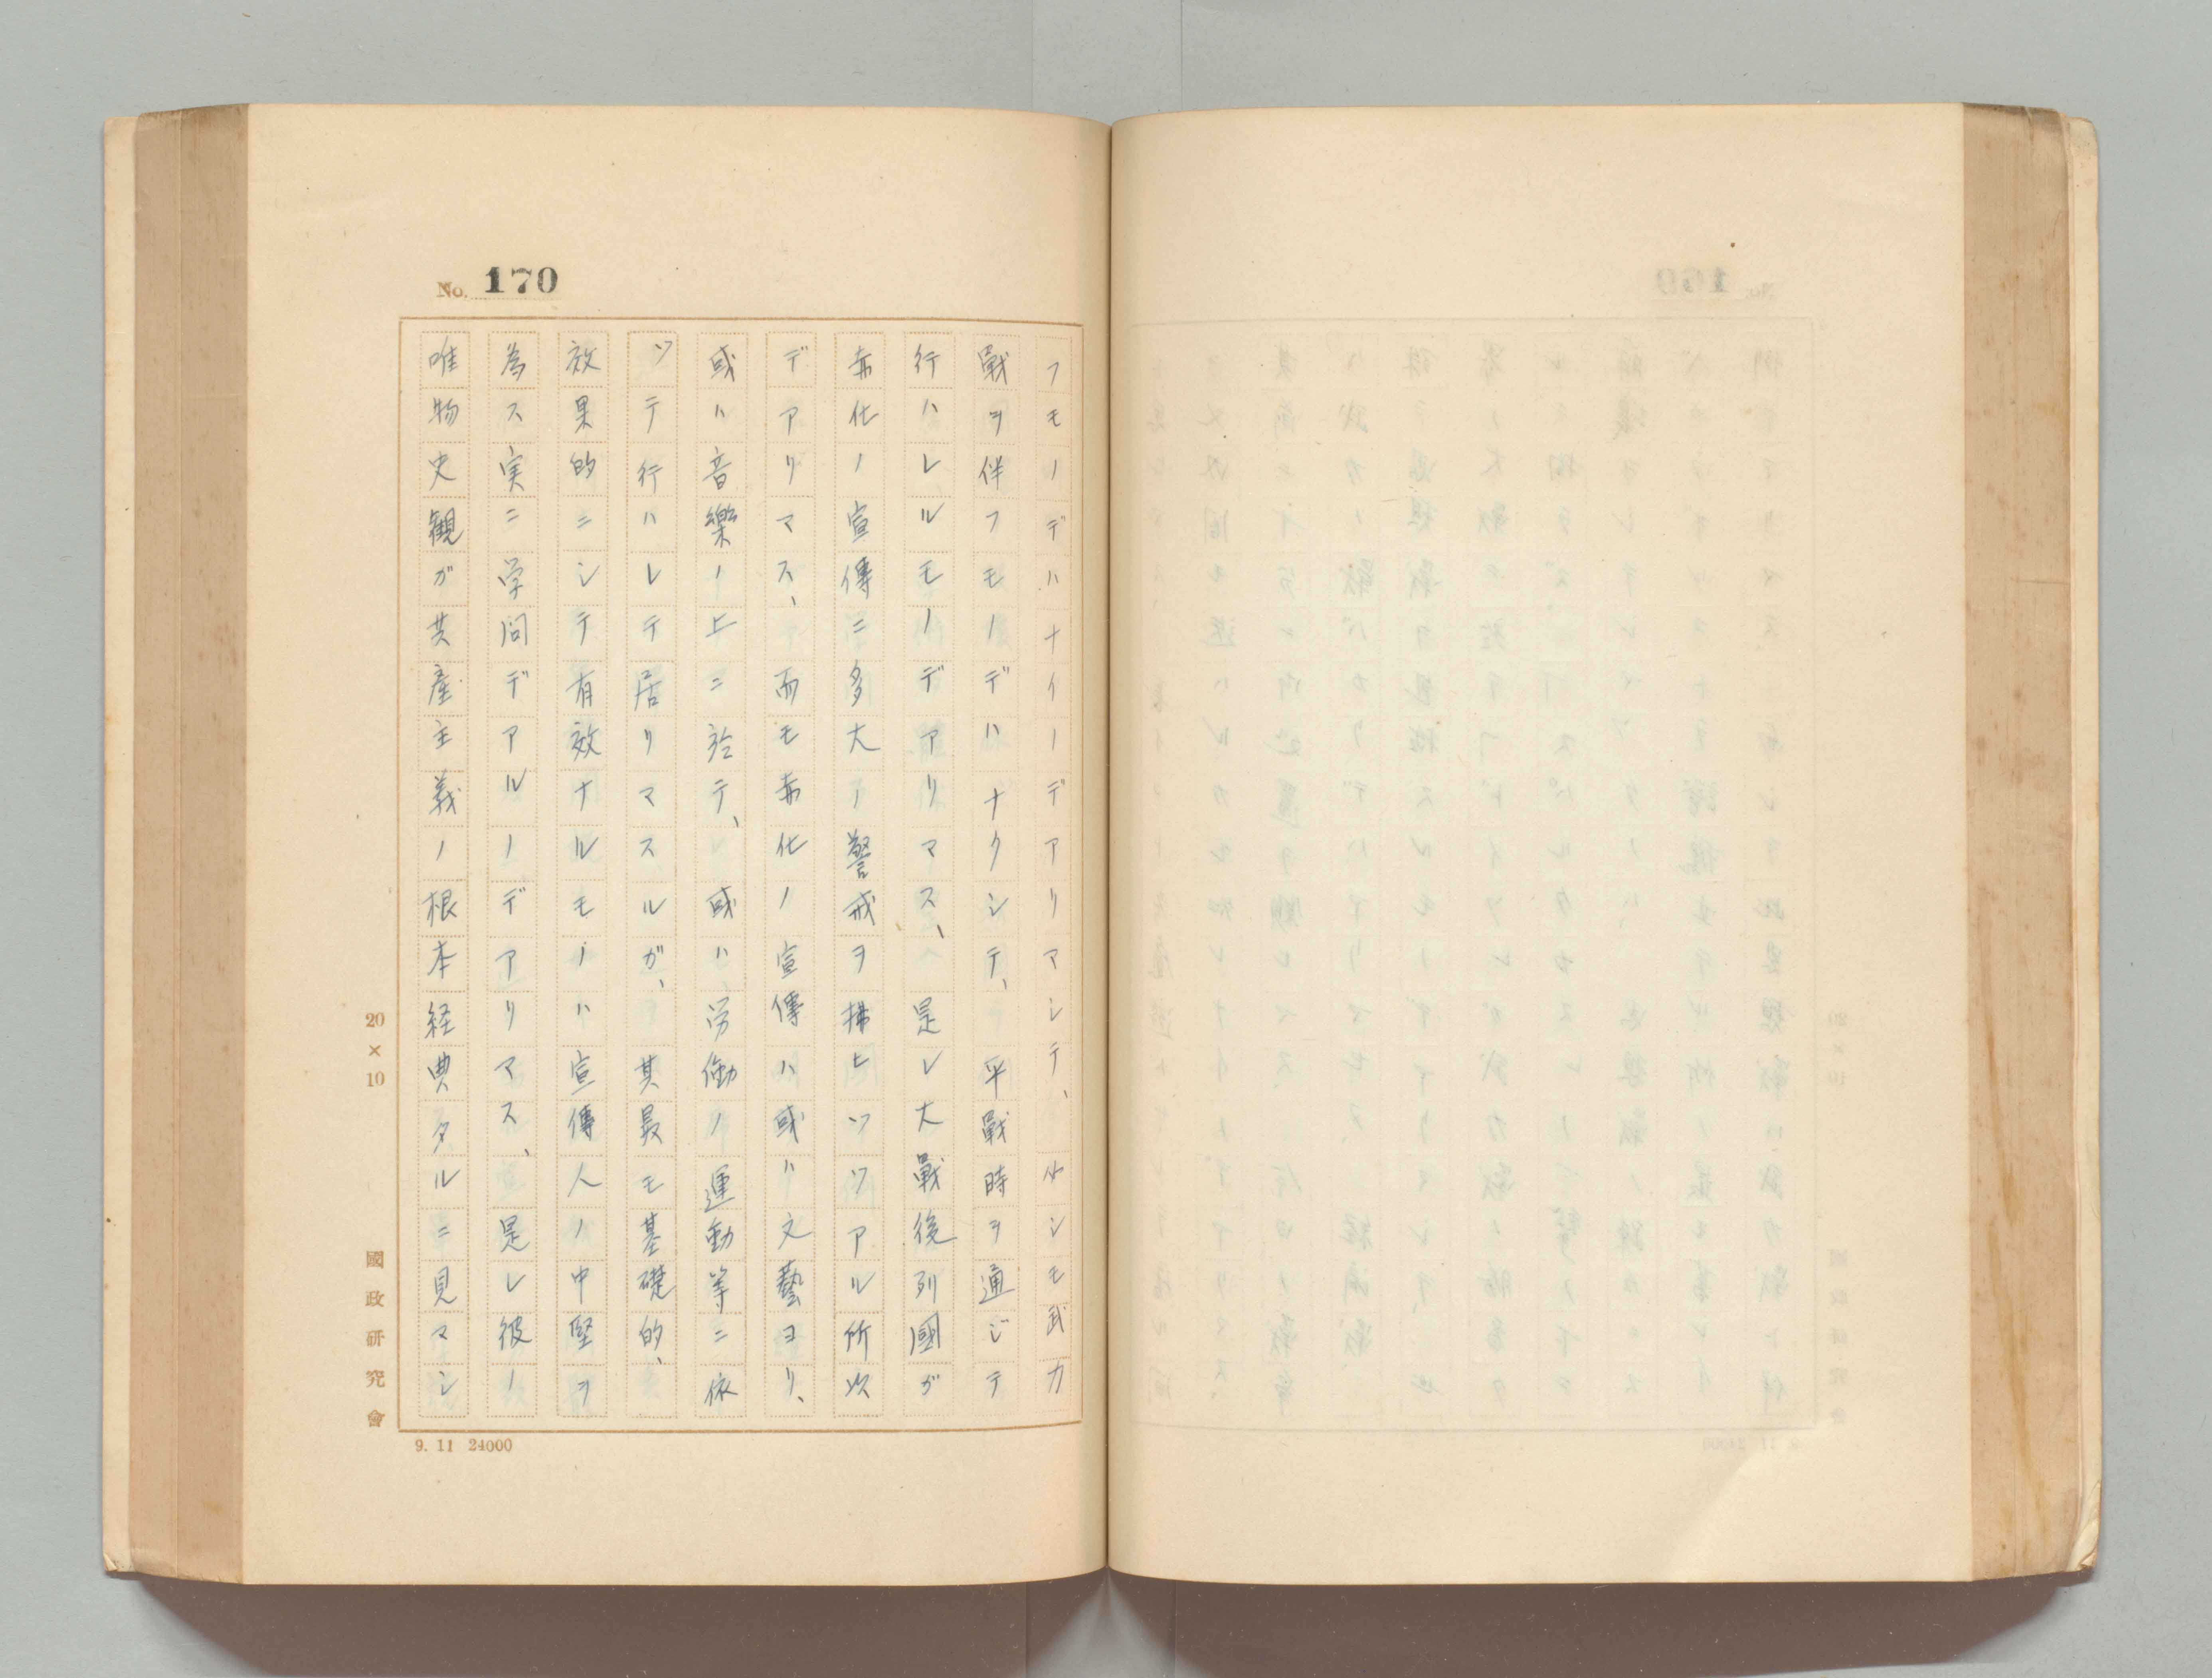 No. 170
フモノデハナイノデアリマシテ、必シモ武力
戰ヲ伴フモノデハナクシテ、平戰時ヲ通ジテ
行ハレルモノデアリマス、是レ大戰後列國ガ
赤化ノ宣傳ニ多大ノ警戒ヲ拂ヒツツアル所以
デアリマス、而モ赤化ノ宣傳ハ或ハ文藝ヨリ、
或ハ音樂ノ上ニ於テ、或ハ労働ノ運動等ニ依
ツテ行ハレテ居リマスルガ、其最モ基礎的、
效果的ニシテ有效ナルモノハ宣傳人ノ中堅ヲ
為ス実ニ学問デアルノデアリマス、是レ彼ノ
唯物史観ガ共産主義ノ根本経典タルニ見マシ
20×10
國政研究會
9. 11 24000